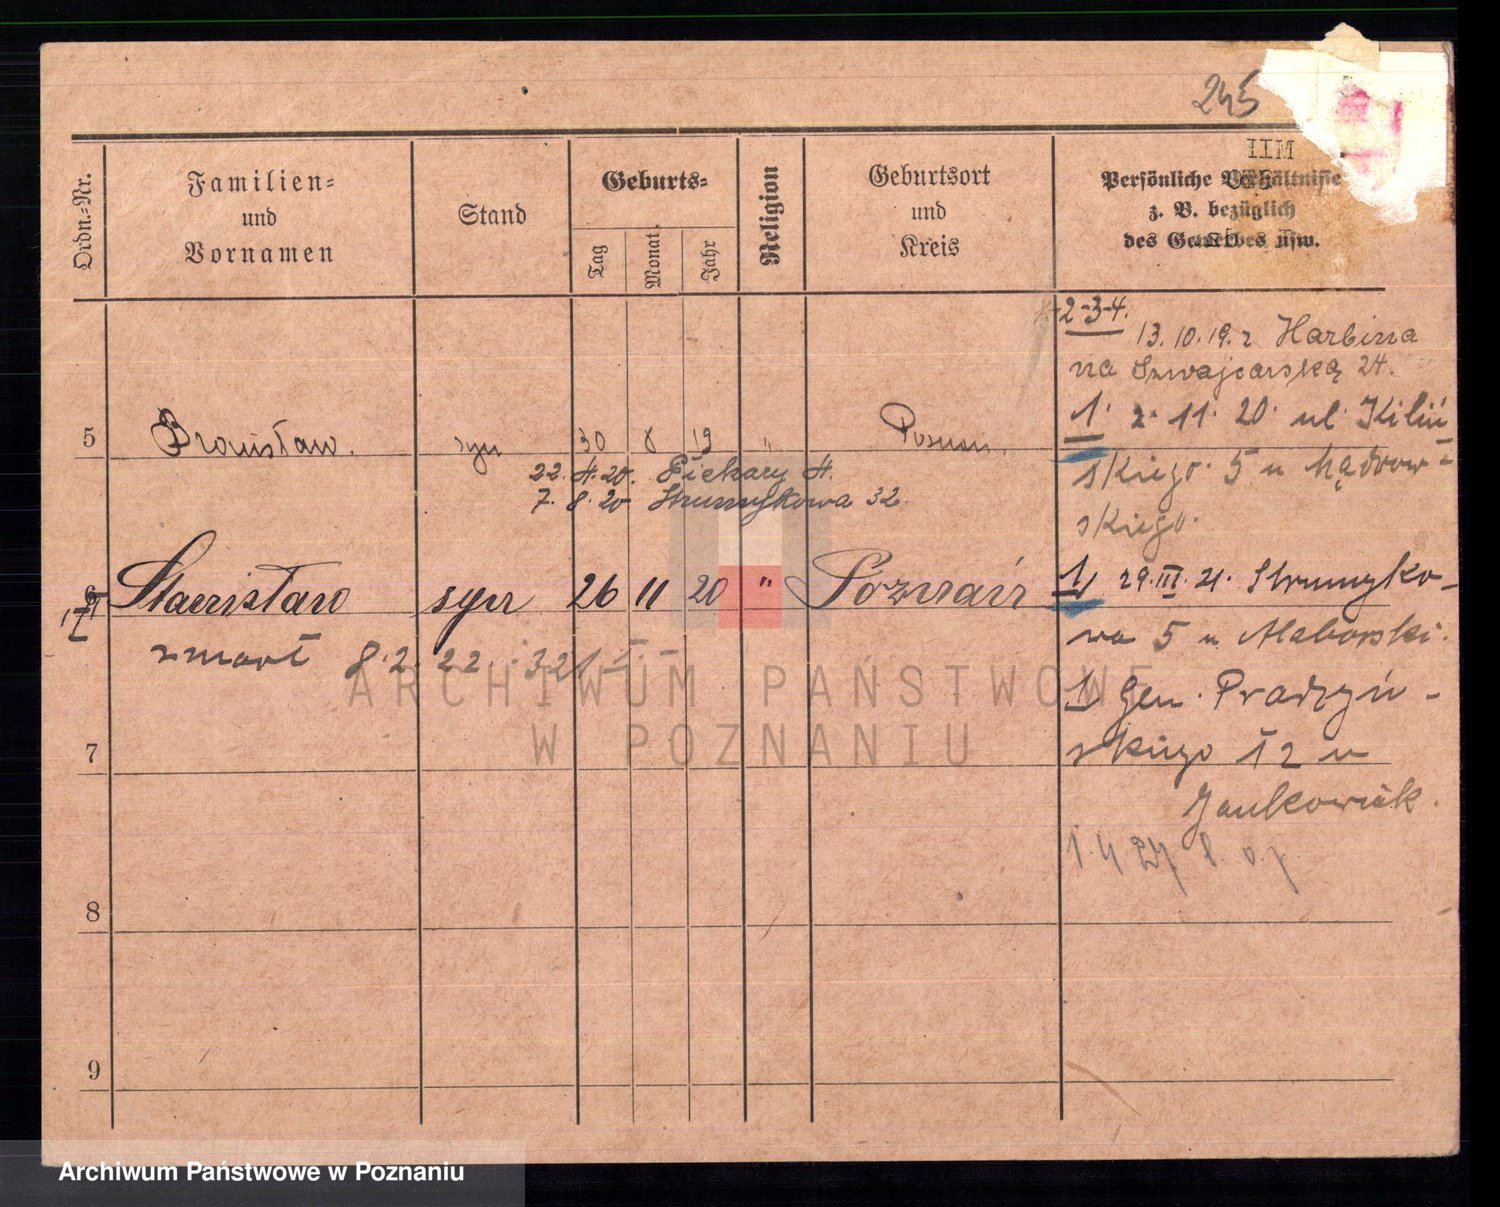 245
Ordn.-Nr.
Familien-
und
Vornamen
Stand
Geburts-
Tag
Monat
Jahr
Religion
Geburtsort
und
Kreis
Persönliche Verhältnisse
z. B. bezüglich
des Gewerbes usw.
1-2-3-4.
13.10.19. z Harbina
na Szwajcarską 24.
1. 2. 11. 20. ul. Kiliń-
5 Bronisław. syn 30 8 19 " Poznań.
skiego. 5 u Mądrow-
22. 4. 20. Piekary 4.
7. 8. 20 Strumykowa 32.
skiego.
6 Stanisław syn 26 11 20 " Poznań
1) 29. III. 21. Strumyko-
wa 5 u Maborski.
zmarł 8. 2. 22. 321
1) Gen. Prądzyń-
7
skiego 12 u
Jankowiak.
1. 4 27
8
9
ARCHIWUM PAŃSTWOWE
W POZNANIU
Archiwum Państwowe w Poznaniu